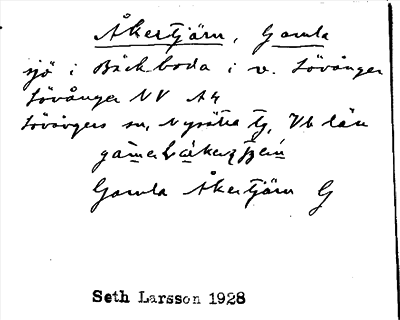 Åkertjärn, Gamla
sjö i Bäckboda i v. Lövånger
Lövånger NV A4
Lövångers sn, Nysätra tg, Vb län
Gamla Åkertjärn G
Seth Larsson 1928